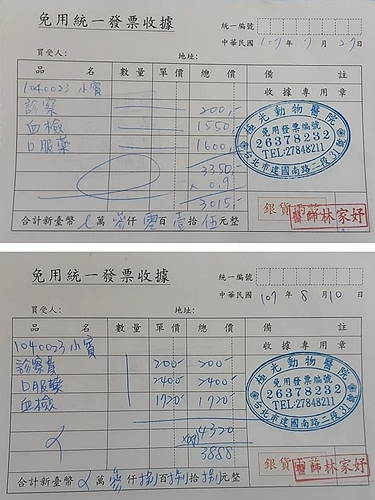 免用統一發票收據
統一編號
中華民國 107 年 7 月 27 日
買受人: 地址:
品名 數量 單價 總價 備註
1040023 小賓 收據專用章
診察 200.-
血檢 1550.-
口服藥 1600.-
3350.-
x 0.9
3015.-
極光動物醫院
免用發票編號
26378232
TEL:27848211
台北市建國南路二段31號
銀貨兩訖
醫師林家妤
合計新臺幣 萬 參 仟 零 百 壹 拾 伍 元整
免用統一發票收據
統一編號
中華民國 107 年 8 月 10 日
買受人: 地址:
品名 數量 單價 總價 備註
1040023 小賓 收據專用章
診察費 200- 200-
口服藥 2400- 2400-
血檢 1720- 1720-
4320
3888
極光動物醫院
免用發票編號
26378232
TEL:27848211
台北市建國南路二段31號
銀貨兩訖
醫師林家妤
合計新臺幣 萬 參 仟 捌 百 捌 拾 捌 元整